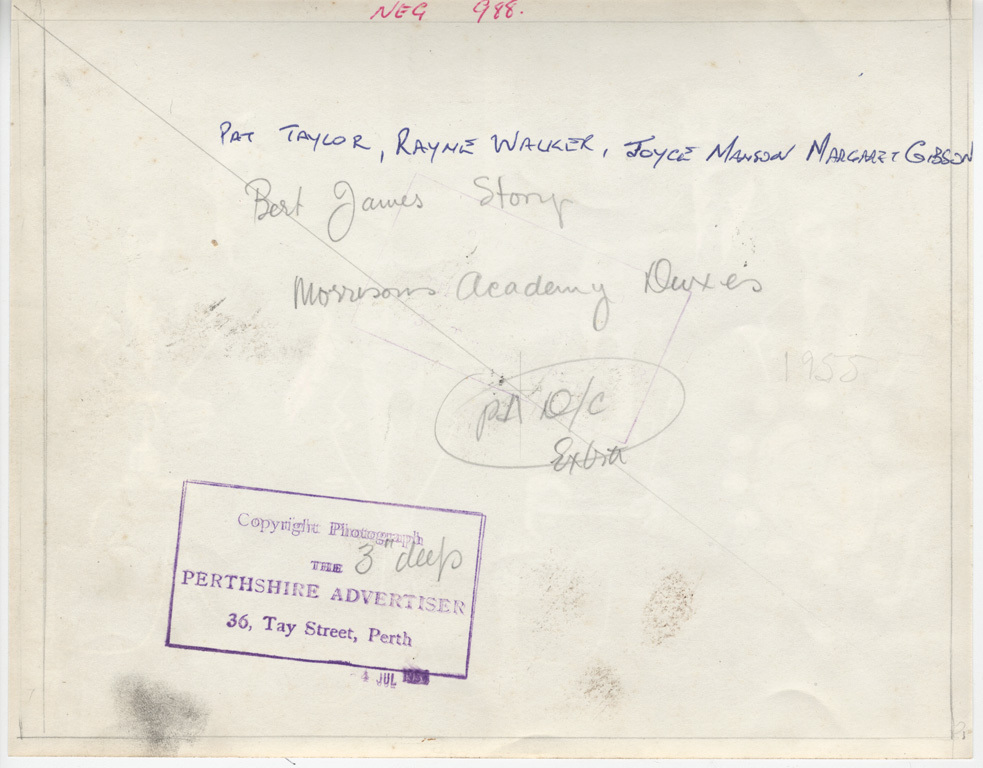 NEG 988.
PAT TAYLOR, RAYNE WALKER, JOYCE MANSON MARGARET GIBSON
Bert James Story
Morrisons Academy Duxes
1955
PA D/C
Copyright Photograph
3" deep
THE
PERTHSHIRE ADVERTISER
36, Tay Street, Perth
4 JUL